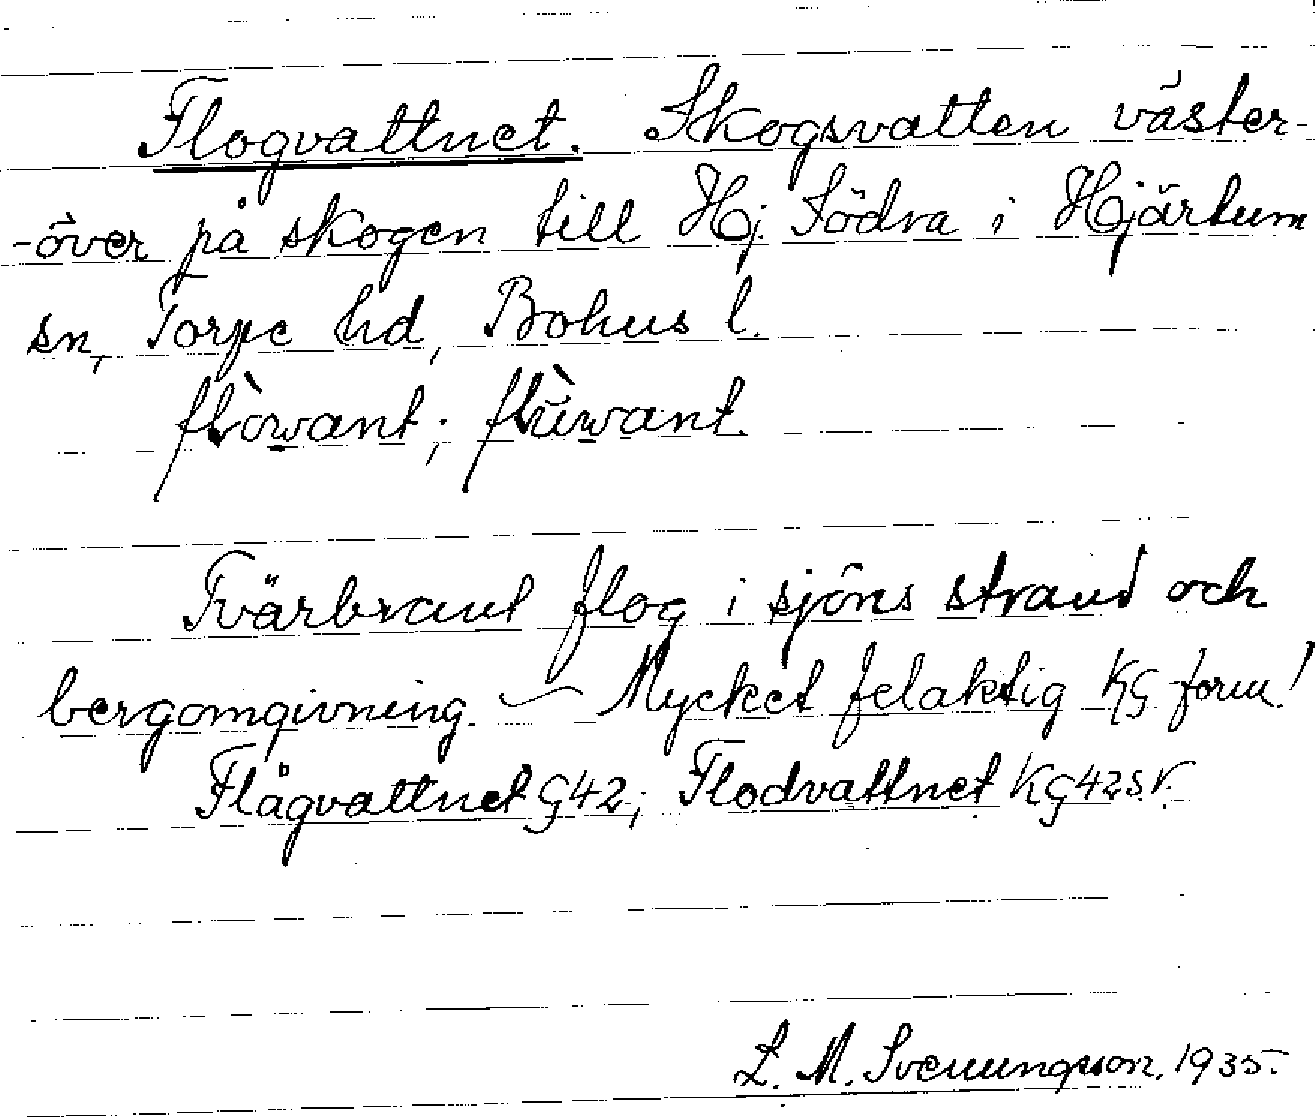 Flogvattnet. Skogsvatten väster-
-över på skogen till Hj. Södra i Hjärtum
sn, Torpe hd, Bohus l.
Tvärbrant flog i sjöns strand och
bergomgivning. — Mycket felaktig KG form!
Flågvattnet G42; Flodvattnet KG42SV.
L. M. Svenungsson. 1935.